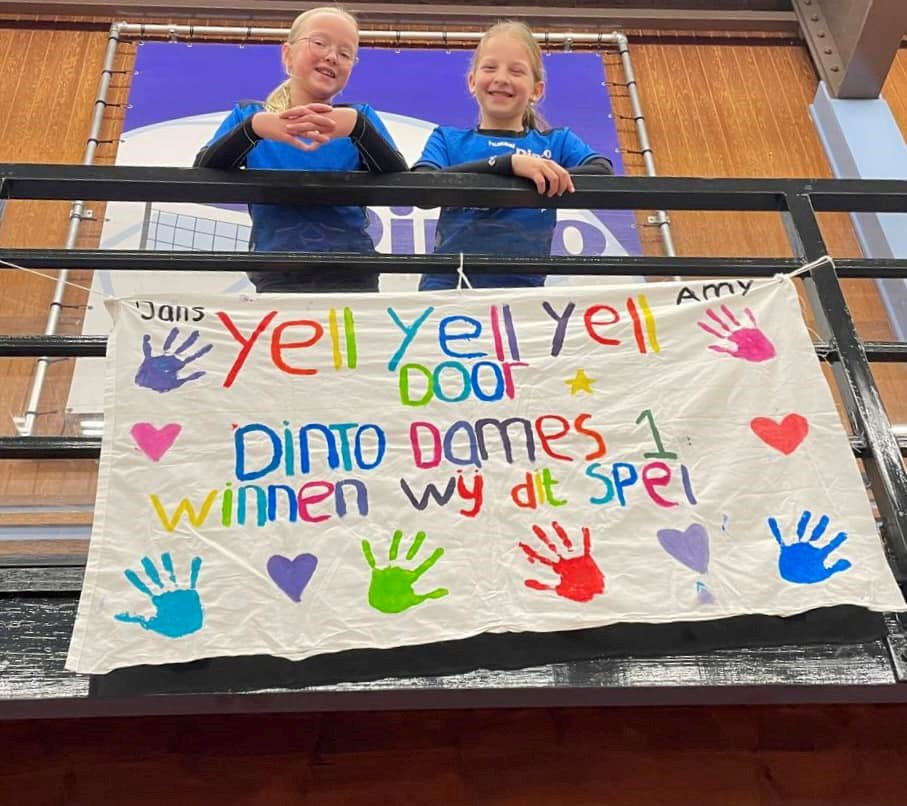 hummel Dinto
Dinto
Jans
Amy
Yell Yell Yell
DOOr
DinTO Dames 1
winnen wij dit spel